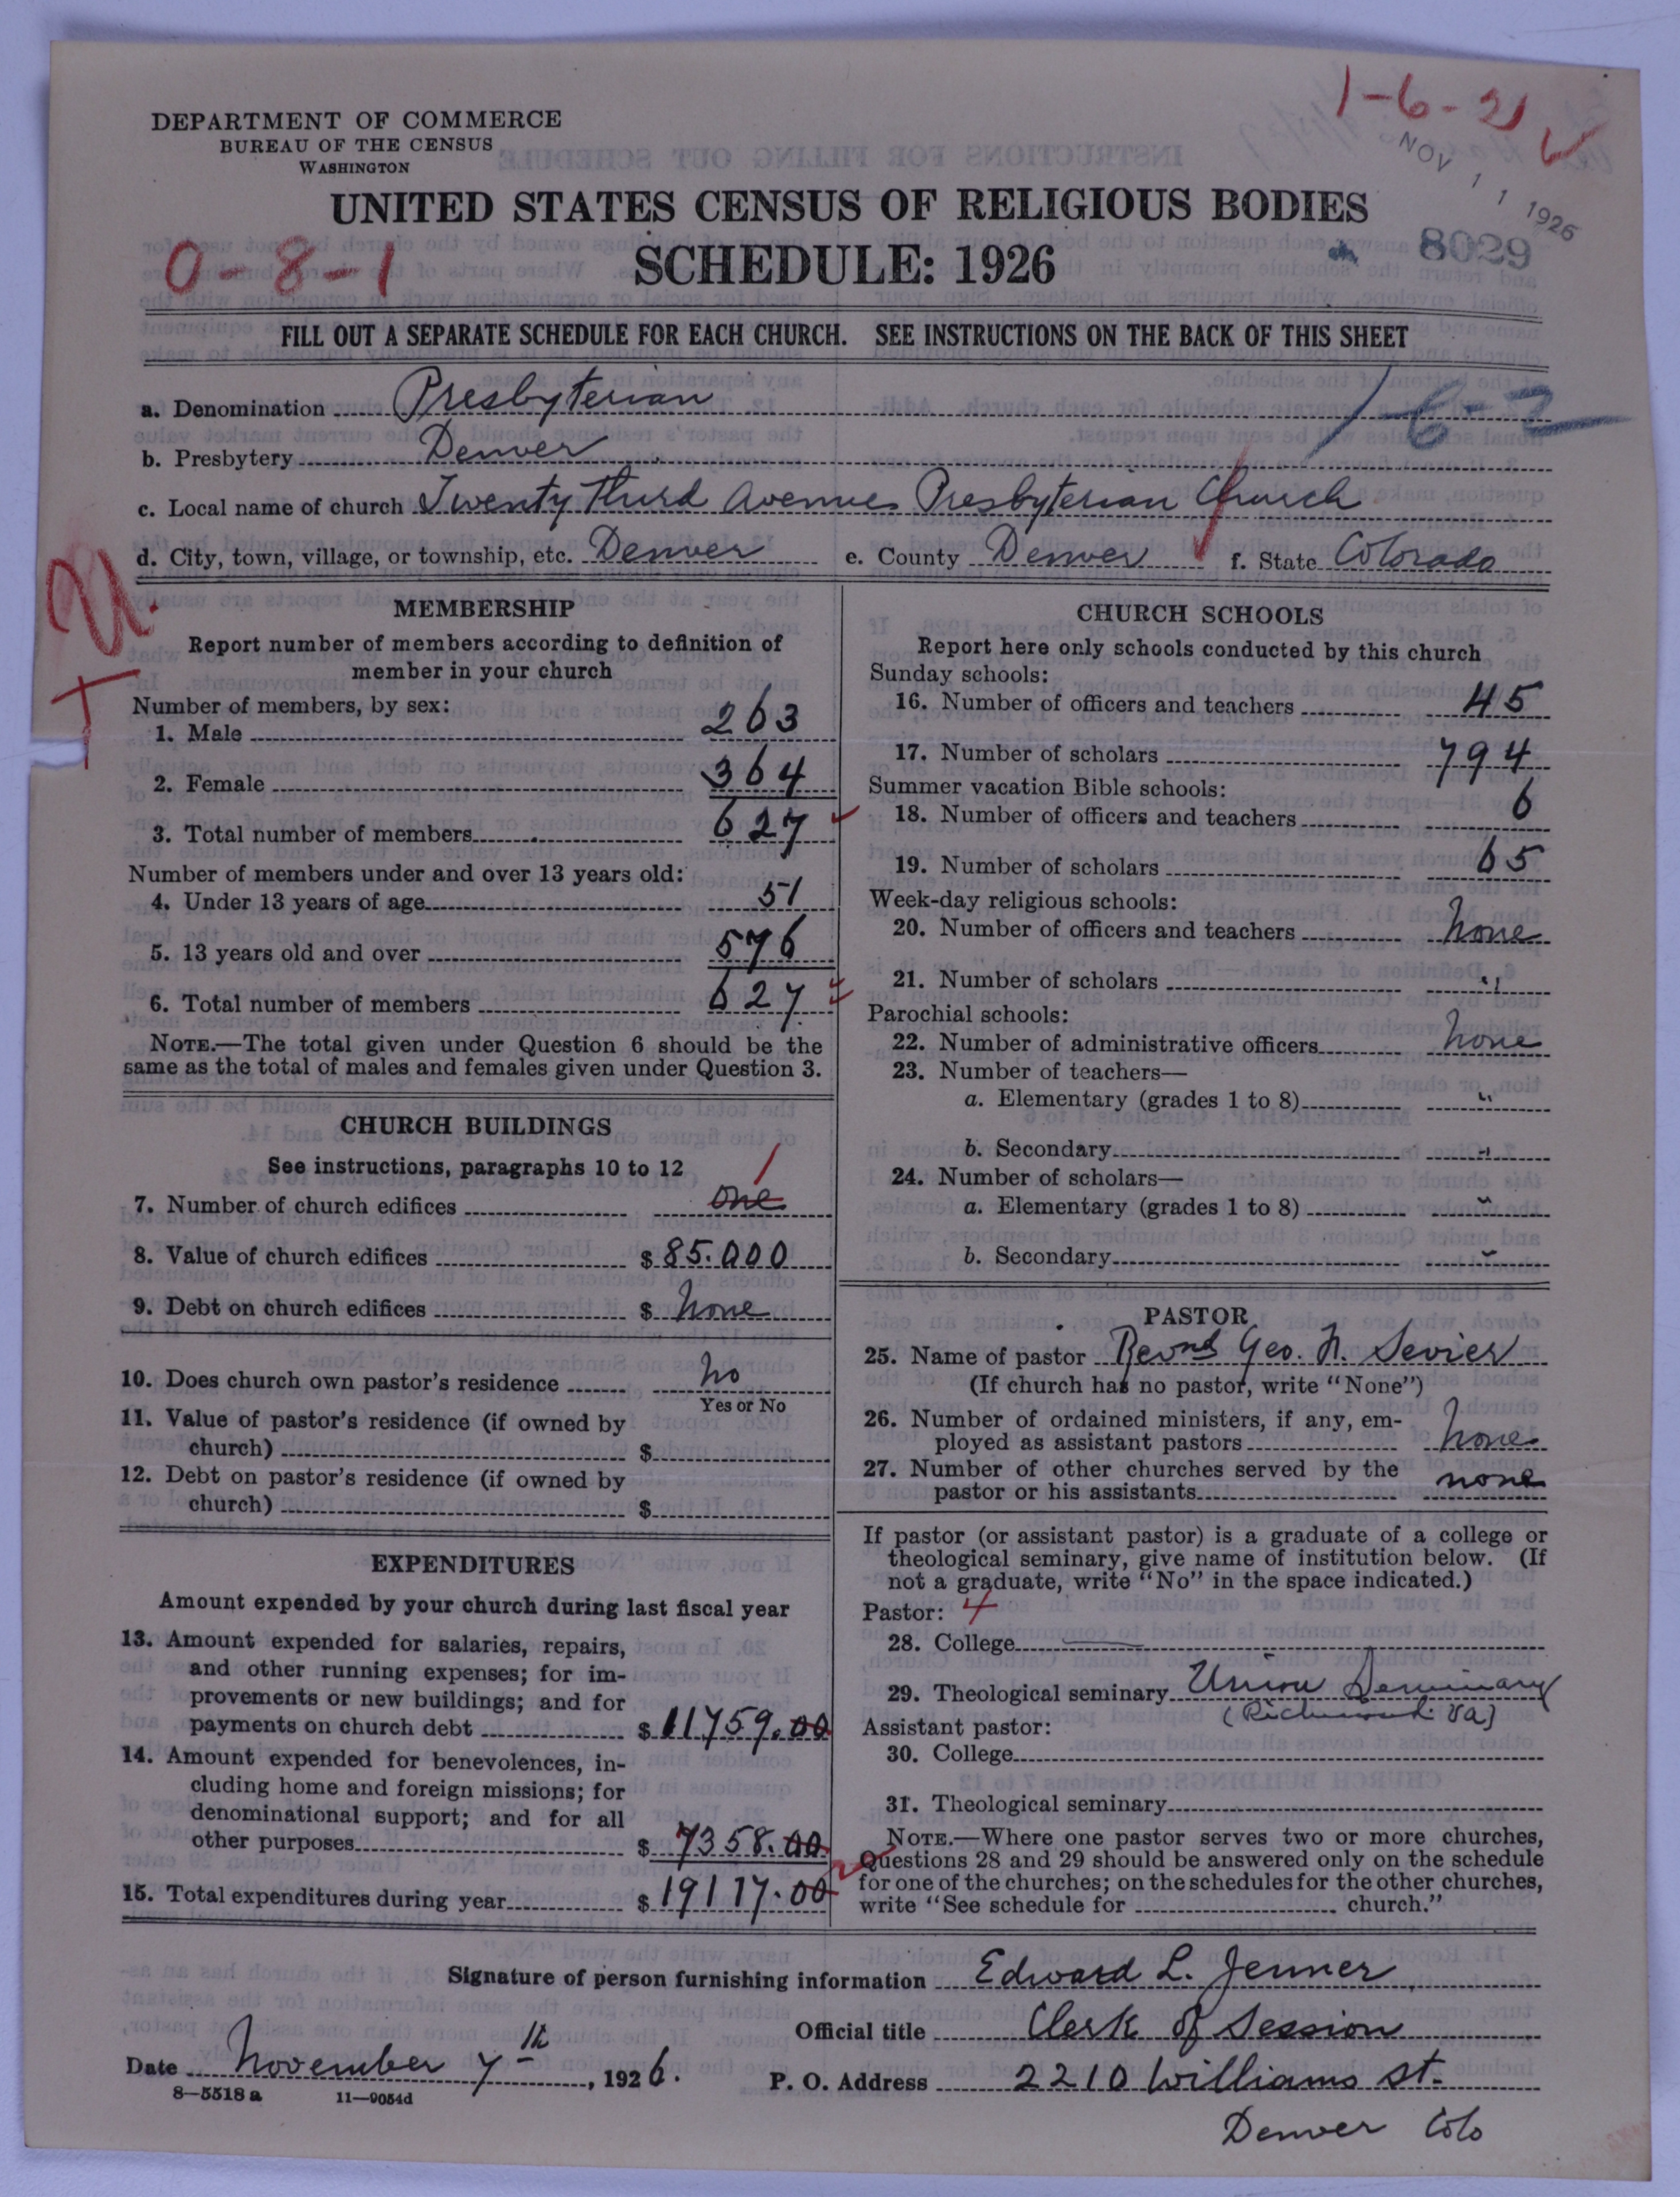 1-6-21
NOV 11 1926
8029
DEPARTMENT OF COMMERCE
BUREAU OF THE CENSUS
WASHINGTON
UNITED STATES CENSUS OF RELIGIOUS BODIES
SCHEDULE: 1926
0-8-1
FILL OUT A SEPARATE SCHEDULE FOR EACH CHURCH. SEE INSTRUCTIONS ON THE BACK OF THIS SHEET
a. Denomination Presbyterian
1-6-2
b. Presbytery Denver
c. Local name of church Twenty third Avenue Presbyterian Church
d. City, town, village, or township, etc. Denver e. County Denver f. State Colorado
MEMBERSHIP
Report number of members according to definition of
member in your church
Number of members, by sex:
1. Male 263
2. Female 364
3. Total number of members 627
Number of members under and over 13 years old:
4. Under 13 years of age 51
5. 13 years old and over 576
6. Total number of members 627
NOTE.—The total given under Question 6 should be the
same as the total of males and females given under Question 3.
CHURCH BUILDINGS
See instructions, paragraphs 10 to 12
1
7. Number of church edifices one
8. Value of church edifices $85.000
9. Debt on church edifices $ None
10. Does church own pastor's residence No
Yes or No
11. Value of pastor's residence (if owned by
church) $
12. Debt on pastor's residence (if owned by
church) $
EXPENDITURES
Amount expended by your church during last fiscal year
13. Amount expended for salaries, repairs,
and other running expenses; for im-
provements or new buildings; and for
payments on church debt $11759.00
14. Amount expended for benevolences, in-
cluding home and foreign missions; for
denominational support; and for all
other purposes $7358.00
15. Total expenditures during year $19117.00
CHURCH SCHOOLS
Report here only schools conducted by this church
Sunday schools:
16. Number of officers and teachers 45
17. Number of scholars 794
Summer vacation Bible schools:
18. Number of officers and teachers 6
19. Number of scholars 65
Week-day religious schools:
20. Number of officers and teachers None
21. Number of scholars "
Parochial schools:
22. Number of administrative officers None
23. Number of teachers—
a. Elementary (grades 1 to 8) "
b. Secondary "
24. Number of scholars—
a. Elementary (grades 1 to 8) "
b. Secondary "
PASTOR
25. Name of pastor Revnd Geo. N. Sevier
(If church has no pastor, write "None")
26. Number of ordained ministers, if any, em-
ployed as assistant pastors None
27. Number of other churches served by the
pastor or his assistants none
If pastor (or assistant pastor) is a graduate of a college or
theological seminary, give name of institution below. (If
not a graduate, write "No" in the space indicated.)
Pastor: 4
28. College
29. Theological seminary Union Seminary
(Richmond Va)
Assistant pastor:
30. College
31. Theological seminary
NOTE.—Where one pastor serves two or more churches,
Questions 28 and 29 should be answered only on the schedule
for one of the churches; on the schedules for the other churches,
write "See schedule for church."
Signature of person furnishing information Edward L. Jenner
Official title Clerk of Session
Date November 7th, 1926.
P. O. Address 2210 Williams st.
Denver Colo
8—5518 a 11—9054d